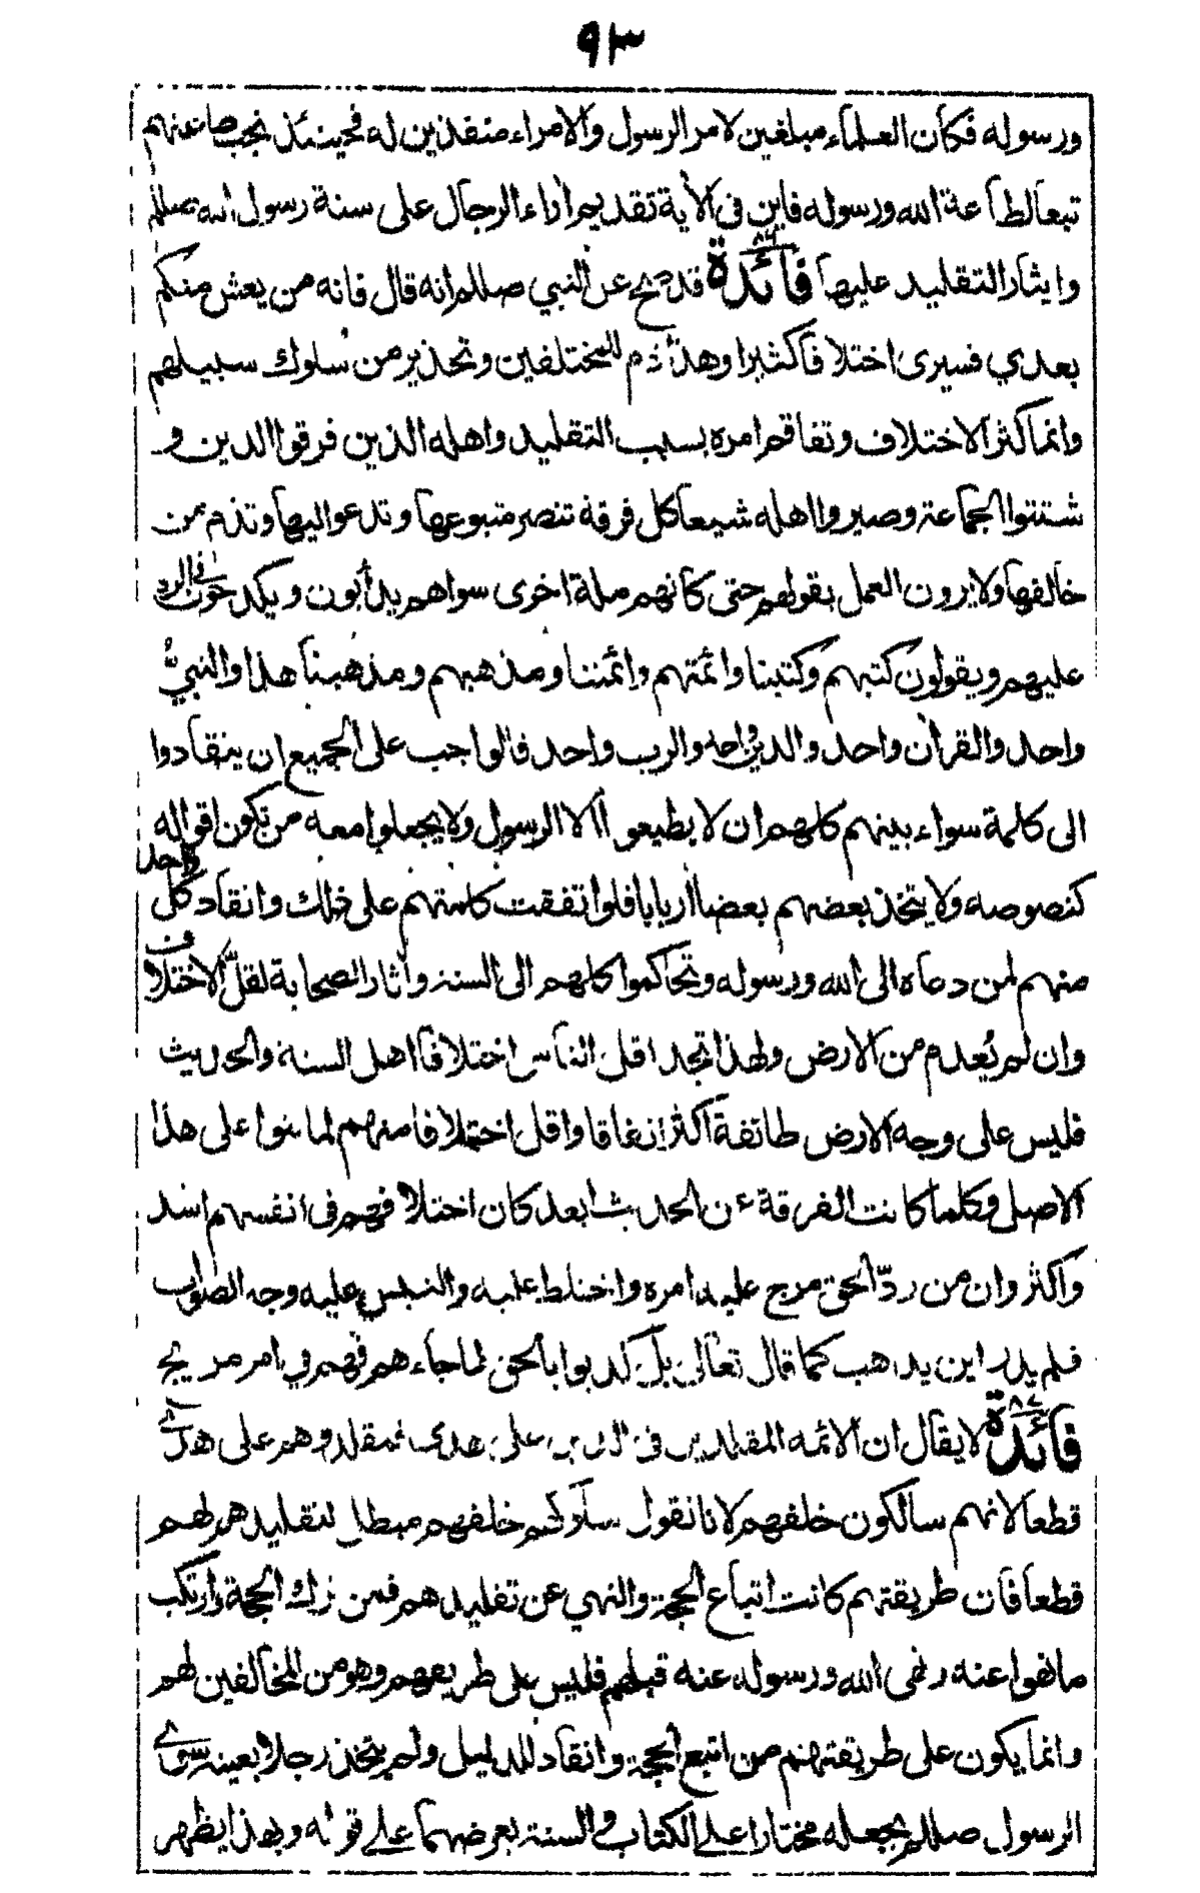 ٩٣
ورسوله فكان العلماء مبلغين لامر الرسول والامراء منفذين له فحينئذ تجب طاعتهم
تبعا لطاعة الله ورسوله فاين فى الآية تقديم اراء الرجال على سنة رسول الله صللم
وايثار التقليد عليها فائدة ٨٦ قد صح عن النبي صللم انه قال فانه من يعش منكم
بعدي فسيرى اختلافا كثيرا وهذا ذم للمختلفين وتحذير من سلوك سبيلهم
وانما كثر الاختلاف وتفاقم امره بسبب التقليد واهله الذين فرقوا الدين و
شتتوا الجماعة وصيروا اهله شيعا كل فرقة تنصر متبوعها وتدعو اليها وتذم من
خالفها ولا يرون العمل بقولهم حتى كانهم ملة اخرى سواهم يدأبون ويكدحون فى الرد
عليهم ويقولون كتبهم وكتبنا وائمتهم وائمتنا ومذهبهم ومذهبنا هذا والنبيُّ
واحد والقرآن واحد والدين واحد والرب واحد فالواجب على الجميع ان ينقادوا
الى كلمة سواء بينهم كلهم ان لا يطيعوا الا الرسول ولا يجعلوا معه من تكون اقواله
كنصوصه ولا يتخذ بعضهم بعضا اربابا فلو اتفقت كلمتهم على ذلك وانقاد كل واحد
منهم لمن دعاه الى الله ورسوله وتحاكموا كلهم الى السنة وآثار الصحابة لقلّ الاختلاف
وان لم يُعدم من الارض ولهذا تجد اقل الناس اختلافا اهل السنة والحديث
فليس على وجه الارض طائفة اكثر اتفاقا واقل اختلافا منهم لما بنوا على هذا
الاصل وكلما كانت الفرقة عن الحديث ابعد كان اختلافهم فى انفسهم اشد
واكثر وان من ردّ الحق مرج عليه امره واختلط عليه والتبس عليه وجه الصواب
فلم يدر اين يذهب كما قال تعالى بل كذبوا بالحق لما جاءهم فهم في امر مريج
فائدة ٨٧ لا يقال ان الائمه المقلدين فى الدين على هدى فمقلدوهم على هدى
قطعا لانهم سالكون خلفهم لانا نقول سلوكهم خلفهم مبطل لتقليدهم لهم
قطعا فان طريقتهم كانت اتباع الحجة والنهي عن تقليدهم فمن ترك الحجة وارتكب
ما نهوا عنه ونهى الله ورسوله عنه قبلهم فليس على طريقهم وهو من المخالفين لهم
وانما يكون على طريقتهم من اتبع الحجة وانقاد للدليل ولم يتخذ رجلا بعينه سوى
الرسول صللم يجعله مختارا على الكتاب والسنة يعرضهما على قوله وبهذا يظهر